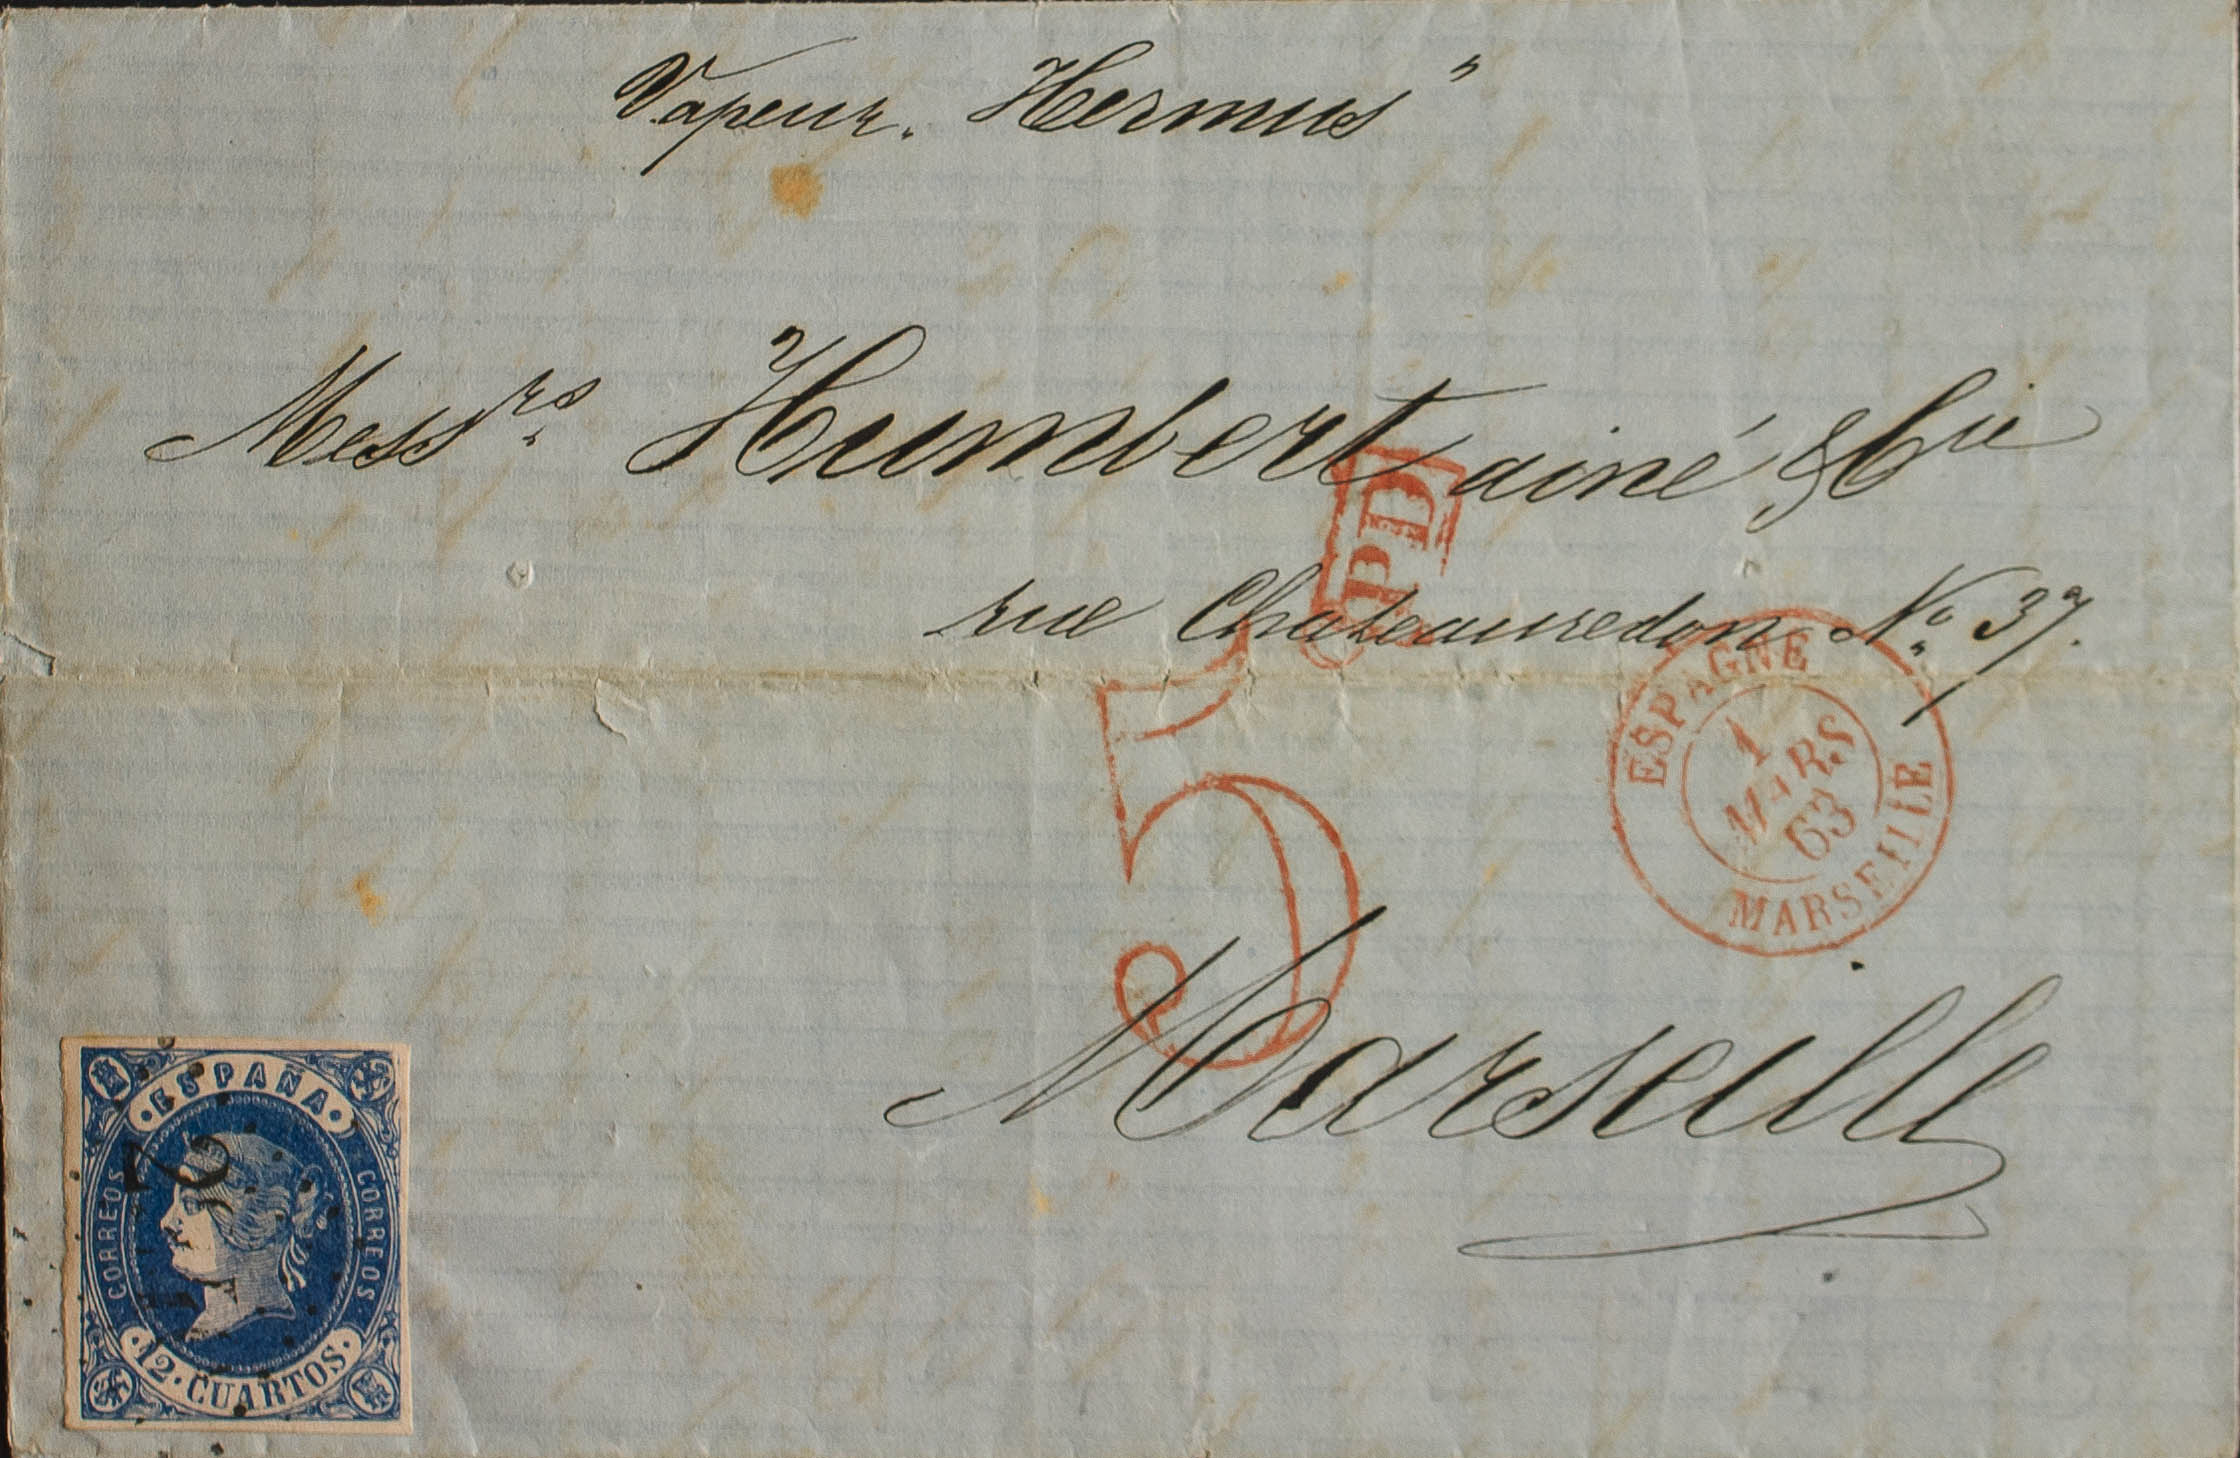 Vapeur "Hermus"
Messrs Humbert ainé & Cie
PD
rue Chateauredon No 37.
5
ESPAGNE
1
MARS
63
MARSEILLE
Marseille
ESPAÑA
CORREOS
CORREOS
12 CUARTOS
2